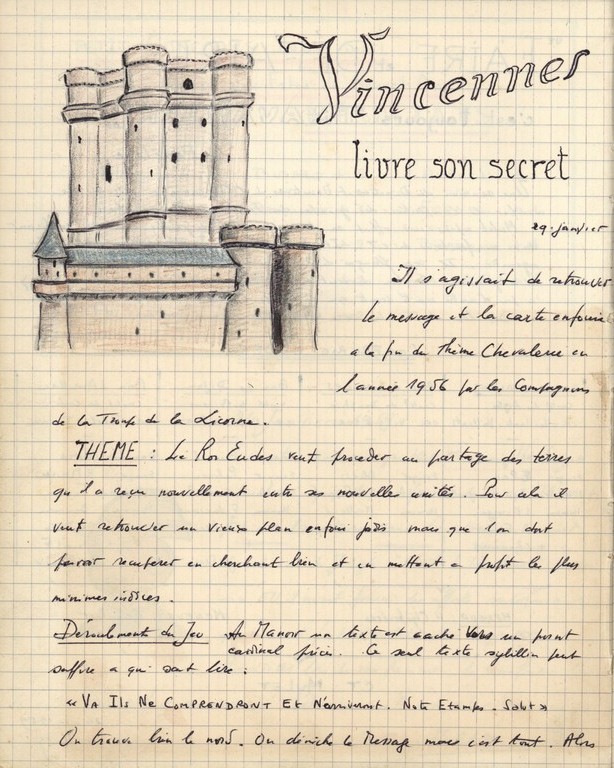 Vincennes
livre son secret
29 janvier
Il s'agissait de retrouver
le message et la carte enfouie
a la fin du thème Chevalerie en
l'année 1956 par les Compagnons
de la Troupe de la Licorne.
THEME : Le Roi Eudes veut proceder au partage des terres
qu'il a reçu nouvellement entre ses nouvelles unités. Pour cela il
veut retrouver un vieux plan enfoui jadis mais que l'on doit
pouvoir recuperer en cherchant bien et en mettant a profit les plus
minimes indices.
Déroulement du Jeu Au Manoir un texte est caché vers un point
cardinal précis. Ce seul texte sybillin peut
suffire a qui sait lire :
« VA ILS NE COMPRENDRONT ET N'arriveront. Note Etampes. Salut »
On trouve bien le nord. On déniche le Message mais c'est tout. Alors